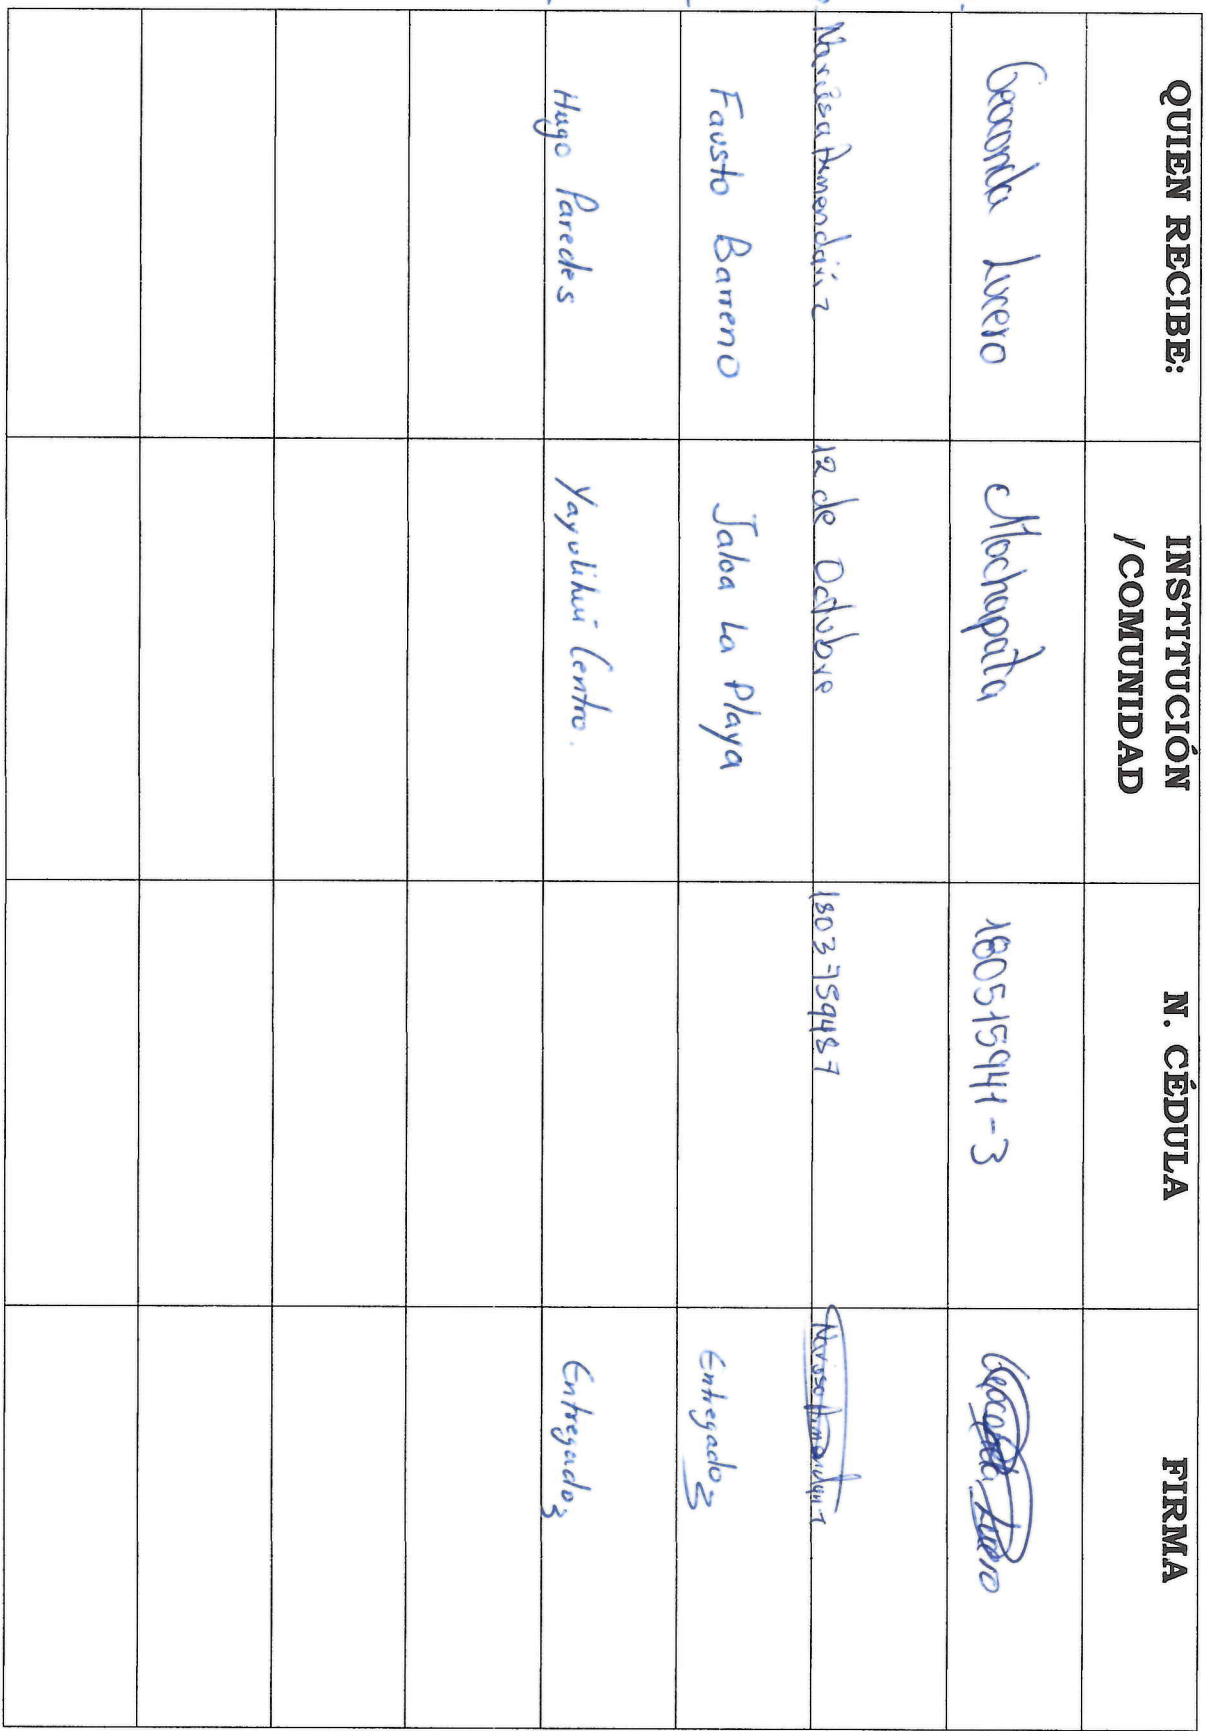 QUIEN RECIBE: INSTITUCIÓN /COMUNIDAD N. CÉDULA FIRMA
Geoconda Lucero Mochapata 180515941-3 Geoconda Lucero
12 de Octubre
Fausto Barreno Jaloa La Playa Entregado
Hugo Paredes Yayulihui Centro. Entregado